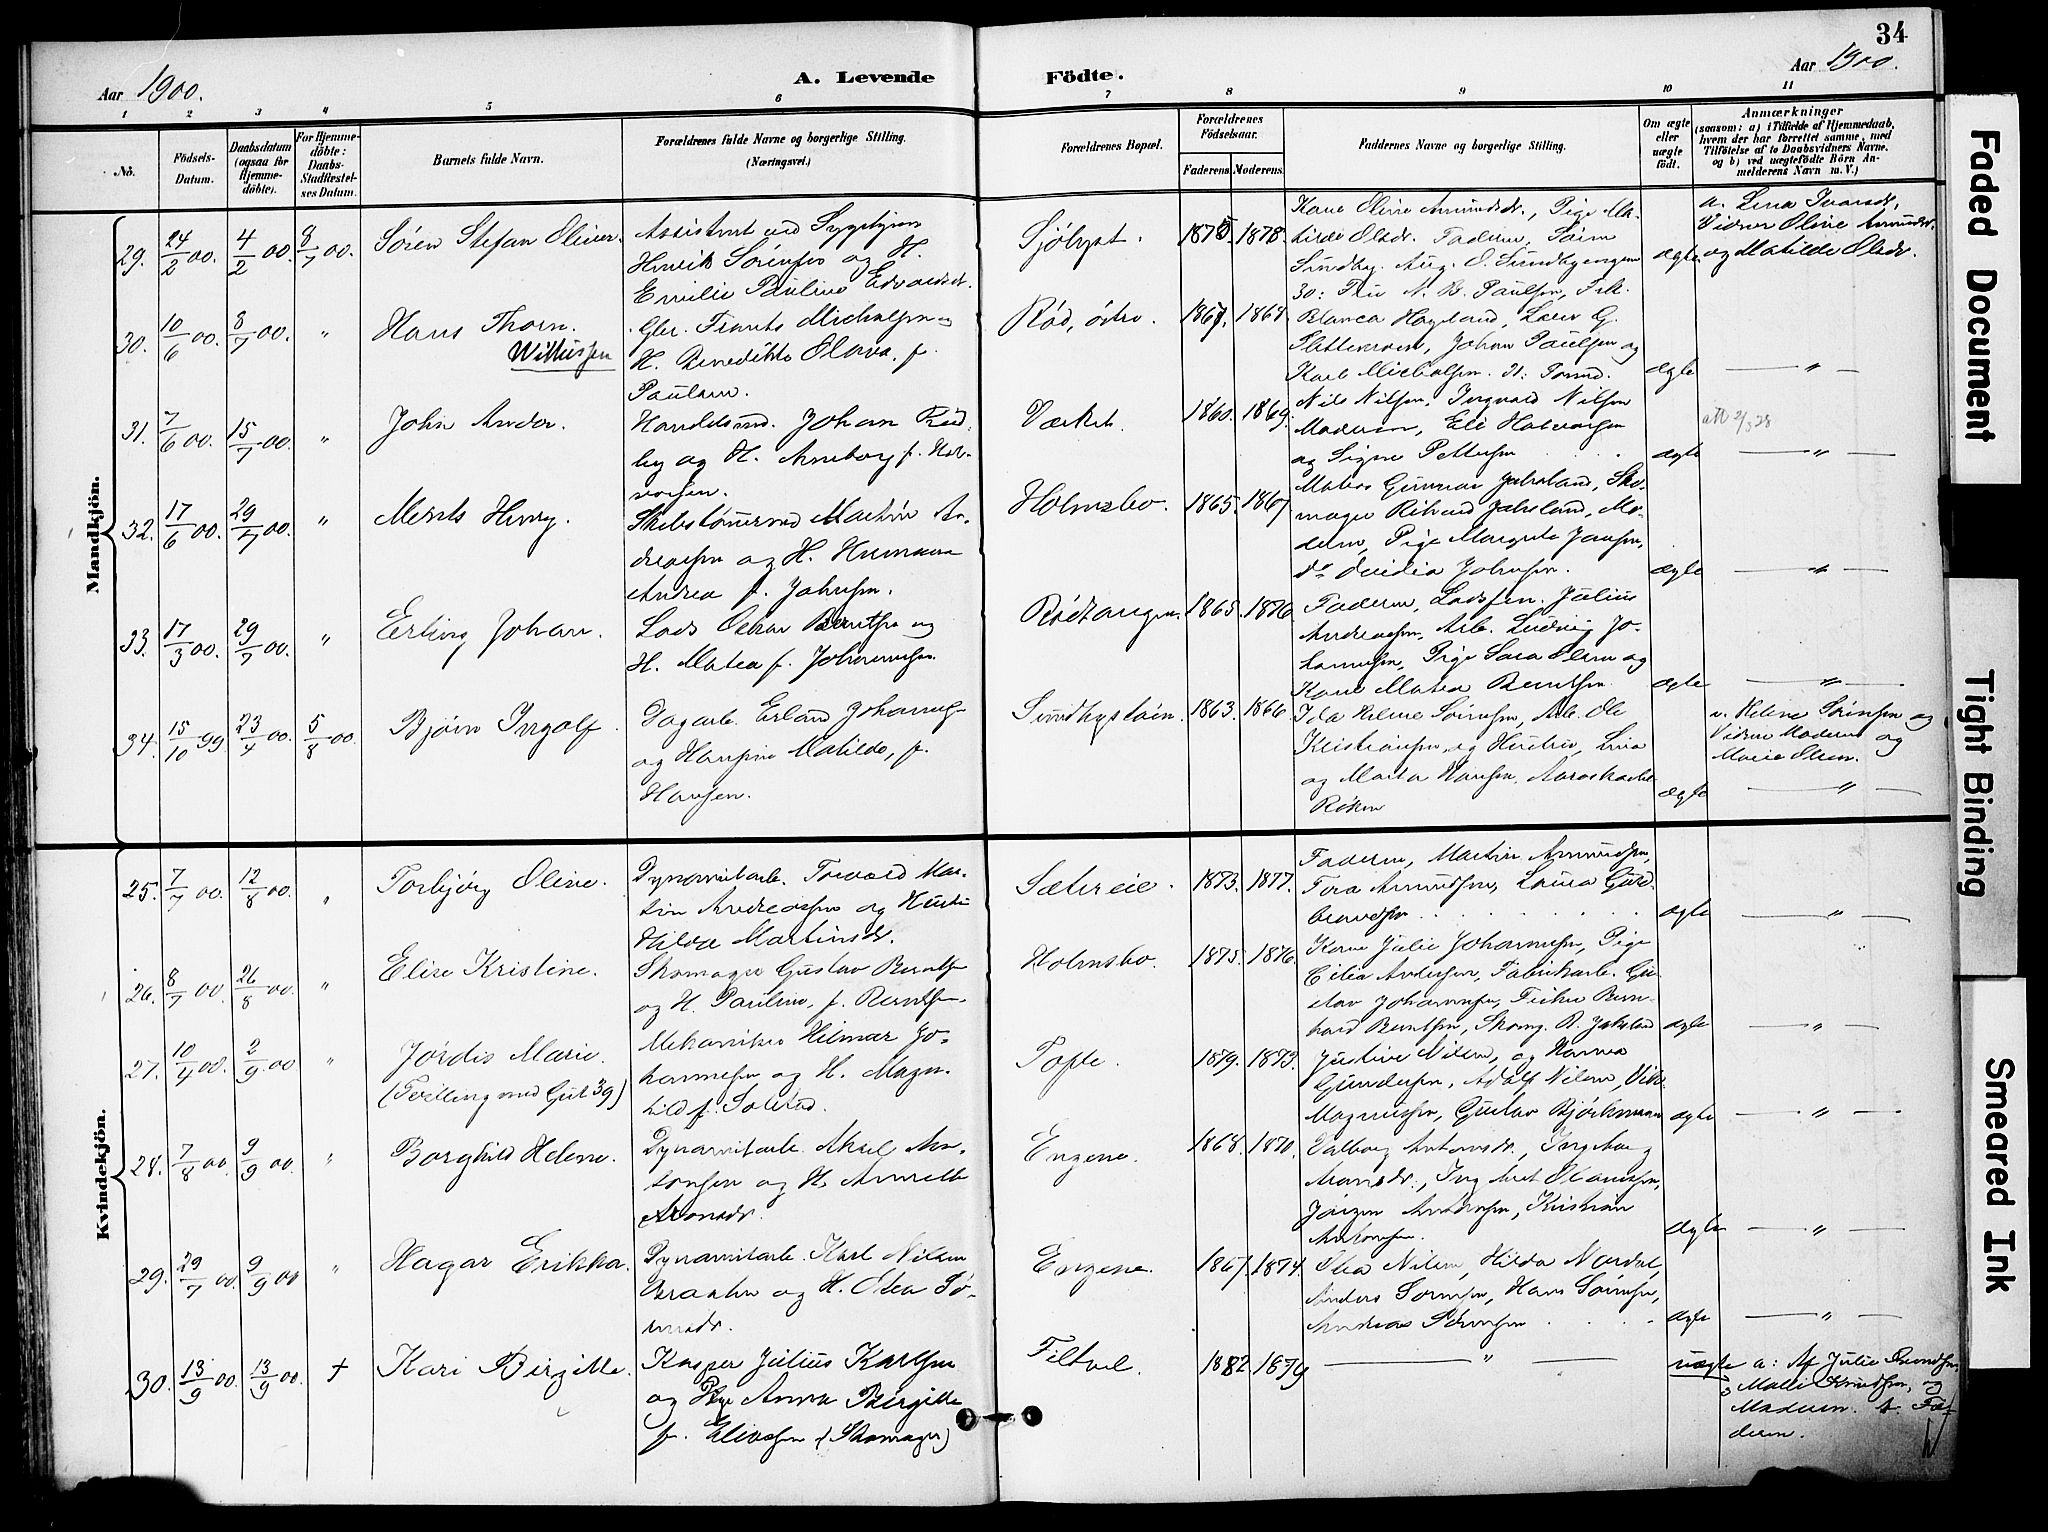 34
Aar 1900. A. Levende Födte. Aar 1900.
1 2 3 4 5 6 7 8 9 10 11
No.
Födsels-Datum.
Daabsdatum (ogsaa for Hjemme-döbte).
For Hjemme-döbte: Daabs-Stadfæstel-ses Datum.
Barnets fulde Navn.
Forældrenes fulde Navne og borgerlige Stilling.
(Næringsvei.)
Forældrenes Bopæl.
Forældrenes Födselsaar.
Faderens. Moderens.
Faddernes Navne og borgerlige Stilling.
Om ægte eller uægte födt.
Anmærkninger
(saasom: a) i Tilfælde af Hjemmedaab,
hvem der har forrettet samme, med
Tilföielse af to Daabsvidners Navne.
og b) ved uægtefödte Börn An-
melderens Navn m. V.)
Mandkjön.
29. 24/2 00. 4/2 00. 8/7 00. Søren Stefan Oliver.
Assistent ved Sygehjem
Henrik Sørensen og H.
Emilie Pauline Edvardsdr.
Sjøhyst. 1875 1878.
Kone Oline Amundsdr., Pige Ma-
tilde Olsdr. Faderen, Søren
Sundby. Aug. O. Sundbyengen
ægte
a. Lena Ivarsdr.
Vidner Oline Amundsdr.
og Matilde Olsdr.
30. 10/6 00. 8/7 00. " Hans Thorn.
Willussen
Gbr. Frants Michelsen og
H. Benedikte Olava f.
Paulsen.
Rød, østre. 1867. 1864
30: Fru N. B. Paulsen, Frk.
Blanca Hageland,
Johan Paulsen og
Karl Michelsen.
ægte — " —
31. 7/6 00. 15/7 00. " John Ander.
Handelsmd. Johan Rød-
by og H. Anneborg f. Hal-
vorsen.
Værket. 1860. 1869.
Nils Nilsen, Ingvald Nilsen
Moderen, Eli Halvorsen
og Signe Pettersen
ægte — " —
32. 17/6 00. 29/7 00. " Ments Henry.
Skibstømmermd Martin An-
dreassen og H.
Andrea f. Johnsen.
Holmsbo. 1865. 1867
Matias Gunnar Jahrland, Sko-
mager Rikard Jahrland, Mo-
deren, Pige Margrete Jansen,
do Ovidia Johnsen.
ægte — " —
33. 17/3 00. 29/7 00. " Erling Johan.
Lods Oskar Berntsen og
H. Matea f. Johannesen.
Rødtangen. 1865. 1876.
Faderen, Lodsfm. Julius
Andreassen, Arb. Ludvig Jo-
hannesen, Pige Sara Olsen og
Kone Matea Berntsen.
ægte — " —
34. 15/10 99 23/4 00. 5/8 00. Bjørn Ingolf.
Dagarb. Erland Johannes
og Hansine Matilde, f.
Hansen.
Sundbystøen. 1863. 1866
Ida Helene Sørensen, Arb. Ole
Kristiansen og Hustru, Lina
og Marta Hansen,
Røken
ægte
a. Helene Sørensen og
Vidne Moderen og
Marie Olsen.
— " —
Kvindekjön.
25. 7/7 00. 12/8 00. " Torbjørg Oline.
Dynamitarb. Torvald Mar-
tin Andreassen og Hustru
Hilda Martinsdr.
Sætereie. 1873. 1877.
Faderen, Martin Amundsen,
Tora Amundsen, Laura Guld-
brandsen
ægte — " —
26. 8/7 00. 26/8 00. " Elise Kristine.
Skomager Gustav Berntsen
og H. Pauline, f. Berntsen.
Holmsbo. 1875. 1876.
Kone Julie Johannesen, Pige
Cilia Andersen, Fabrikarb. Gu-
stav Johannesen, Fisker Bern-
hard Berntsen, Skomg. R. Jahrland
ægte — " —
27. 10/4 00. 2/9 00 " Jørdis Marie.
(Tvilling med Gut 39)
Mekaniker Hilmar Jo-
hannesen og H. Magn-
hild f. Solstad.
Tofte. 1879. 1873.
Justine Nilsen, og Hanna
Gundersen, Adolf Nilsen, Vilh.
Magnussen, Gustav Bjørkmann
ægte — " —
28. 7/8 00. 9/9 00. " Borghild Helene.
Dynamitarb. Aksel An-
tonsen og H. Annette
Aronsdr.
Engene. 1868. 1870.
Valborg Antonsdr., Ingeborg
Aronsdr.,
Jørgen Andersen, Kristian
Antonsen.
ægte — " —
29. 29/7 00. 9/9 00 " Hagar Erikka.
Dynamitarb. Karl Nilsen
Braaten og H. Olea Tø-
nnesdr.
Engene. 1867. 1874.
Olea Nilsen, Hilda Nordal,
Anders Sørensen, Hans Sørensen,
Andreas Sørensen
ægte — " —
30. 13/9 00. 13/9 00. † Kari Birgitte.
Kasper Julius Karlsen
og Pige Anna Birgitte
f. Eliassen (Skomager)
Filtvet. 1882 1879
— " —
uægte
a: Af Julie
Malli Knudsen, og
Moderen. b. Fa-
deren.
Faded Document
Tight Binding
Smeared Ink